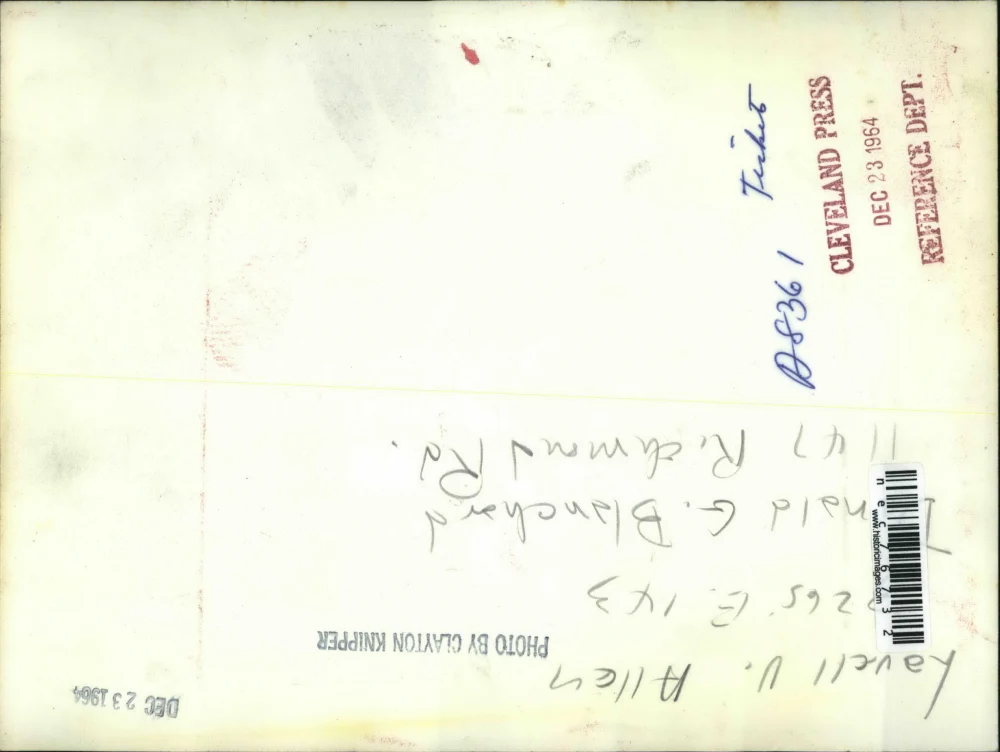 Lavell V. Allen
3265 E. 143
Donald G. Blanchard
1147 Richmond Rd.
PHOTO BY CLAYTON KNIPPER
DEC 23 1964
A8361 Tickets
CLEVELAND PRESS
DEC 23 1964
REFERENCE DEPT.
www.historicimages.com
nec76732